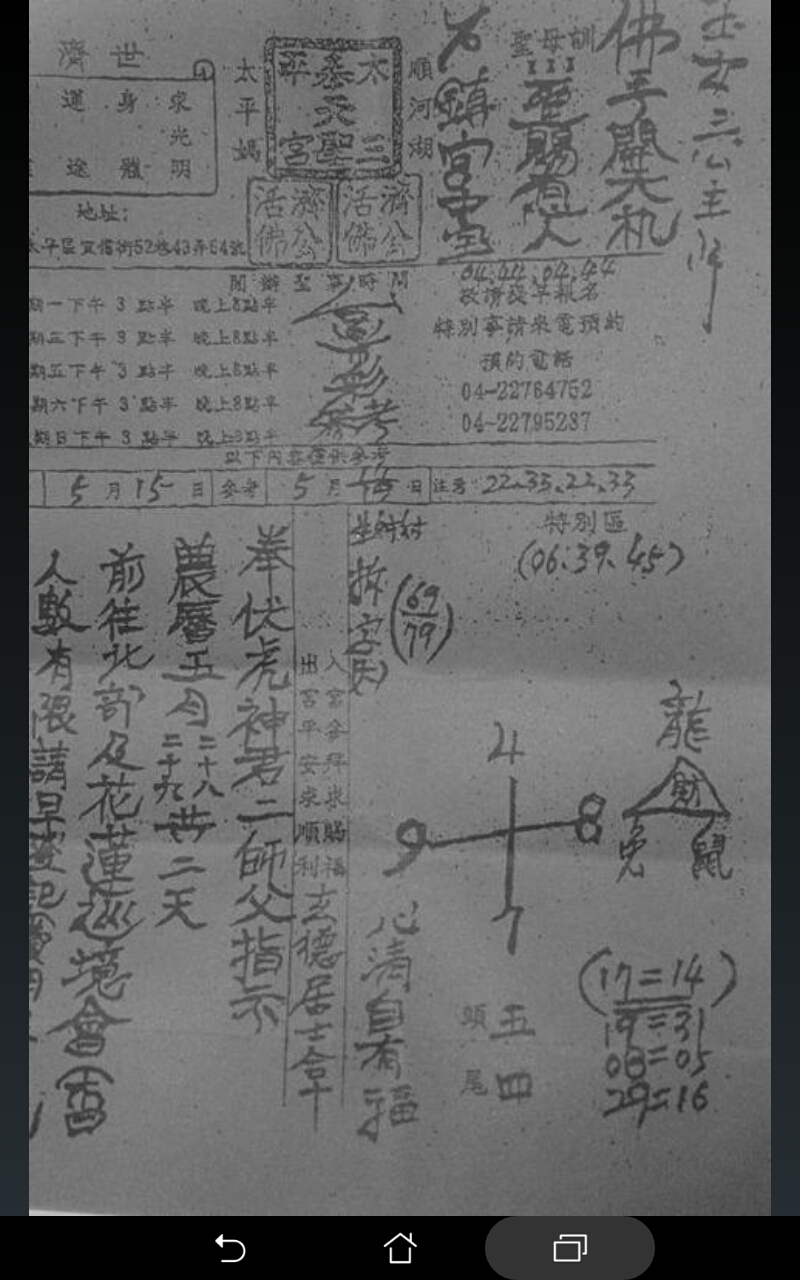 玉女三公主降
佛手開天机
聖母訓
聖賜有人
石鎮宮中堂
順河湖
太三
泰天聖
平宮
太平媽
濟公活佛
濟公活佛
世濟
求光明
身體
運途
地址:
太平區宜信街52巷43弄64號
開辦聖事時間
期一下午3點半 晚上8點半
期三下午3點半 晚上8點半
期五下午3點半 晚上8點半
期六下午3點半 晚上8點半
期日下午3點半 晚上8點半
參考
04.44.04.44
敬請提早報名
特別事請來電預約
預約電話
04-22764752
04-22795237
以下內容僅供參考
5月15日 參考 5月 日 注意 22.33.22.33
特別區
(06.39.45)
拆字
(69/79)
4
9 8
7
龍
財
兔 鼠
(17=14)
19=31
08=05
29=16
頭 五
尾 四
心清自有福
入宮參拜求賜福
出宮平安求順利
玄德居士合十
奉伏虎神君二師父指示
農曆五月二十八二十九共二天
前往北部及花蓮巡境會香
人數有限請早登記